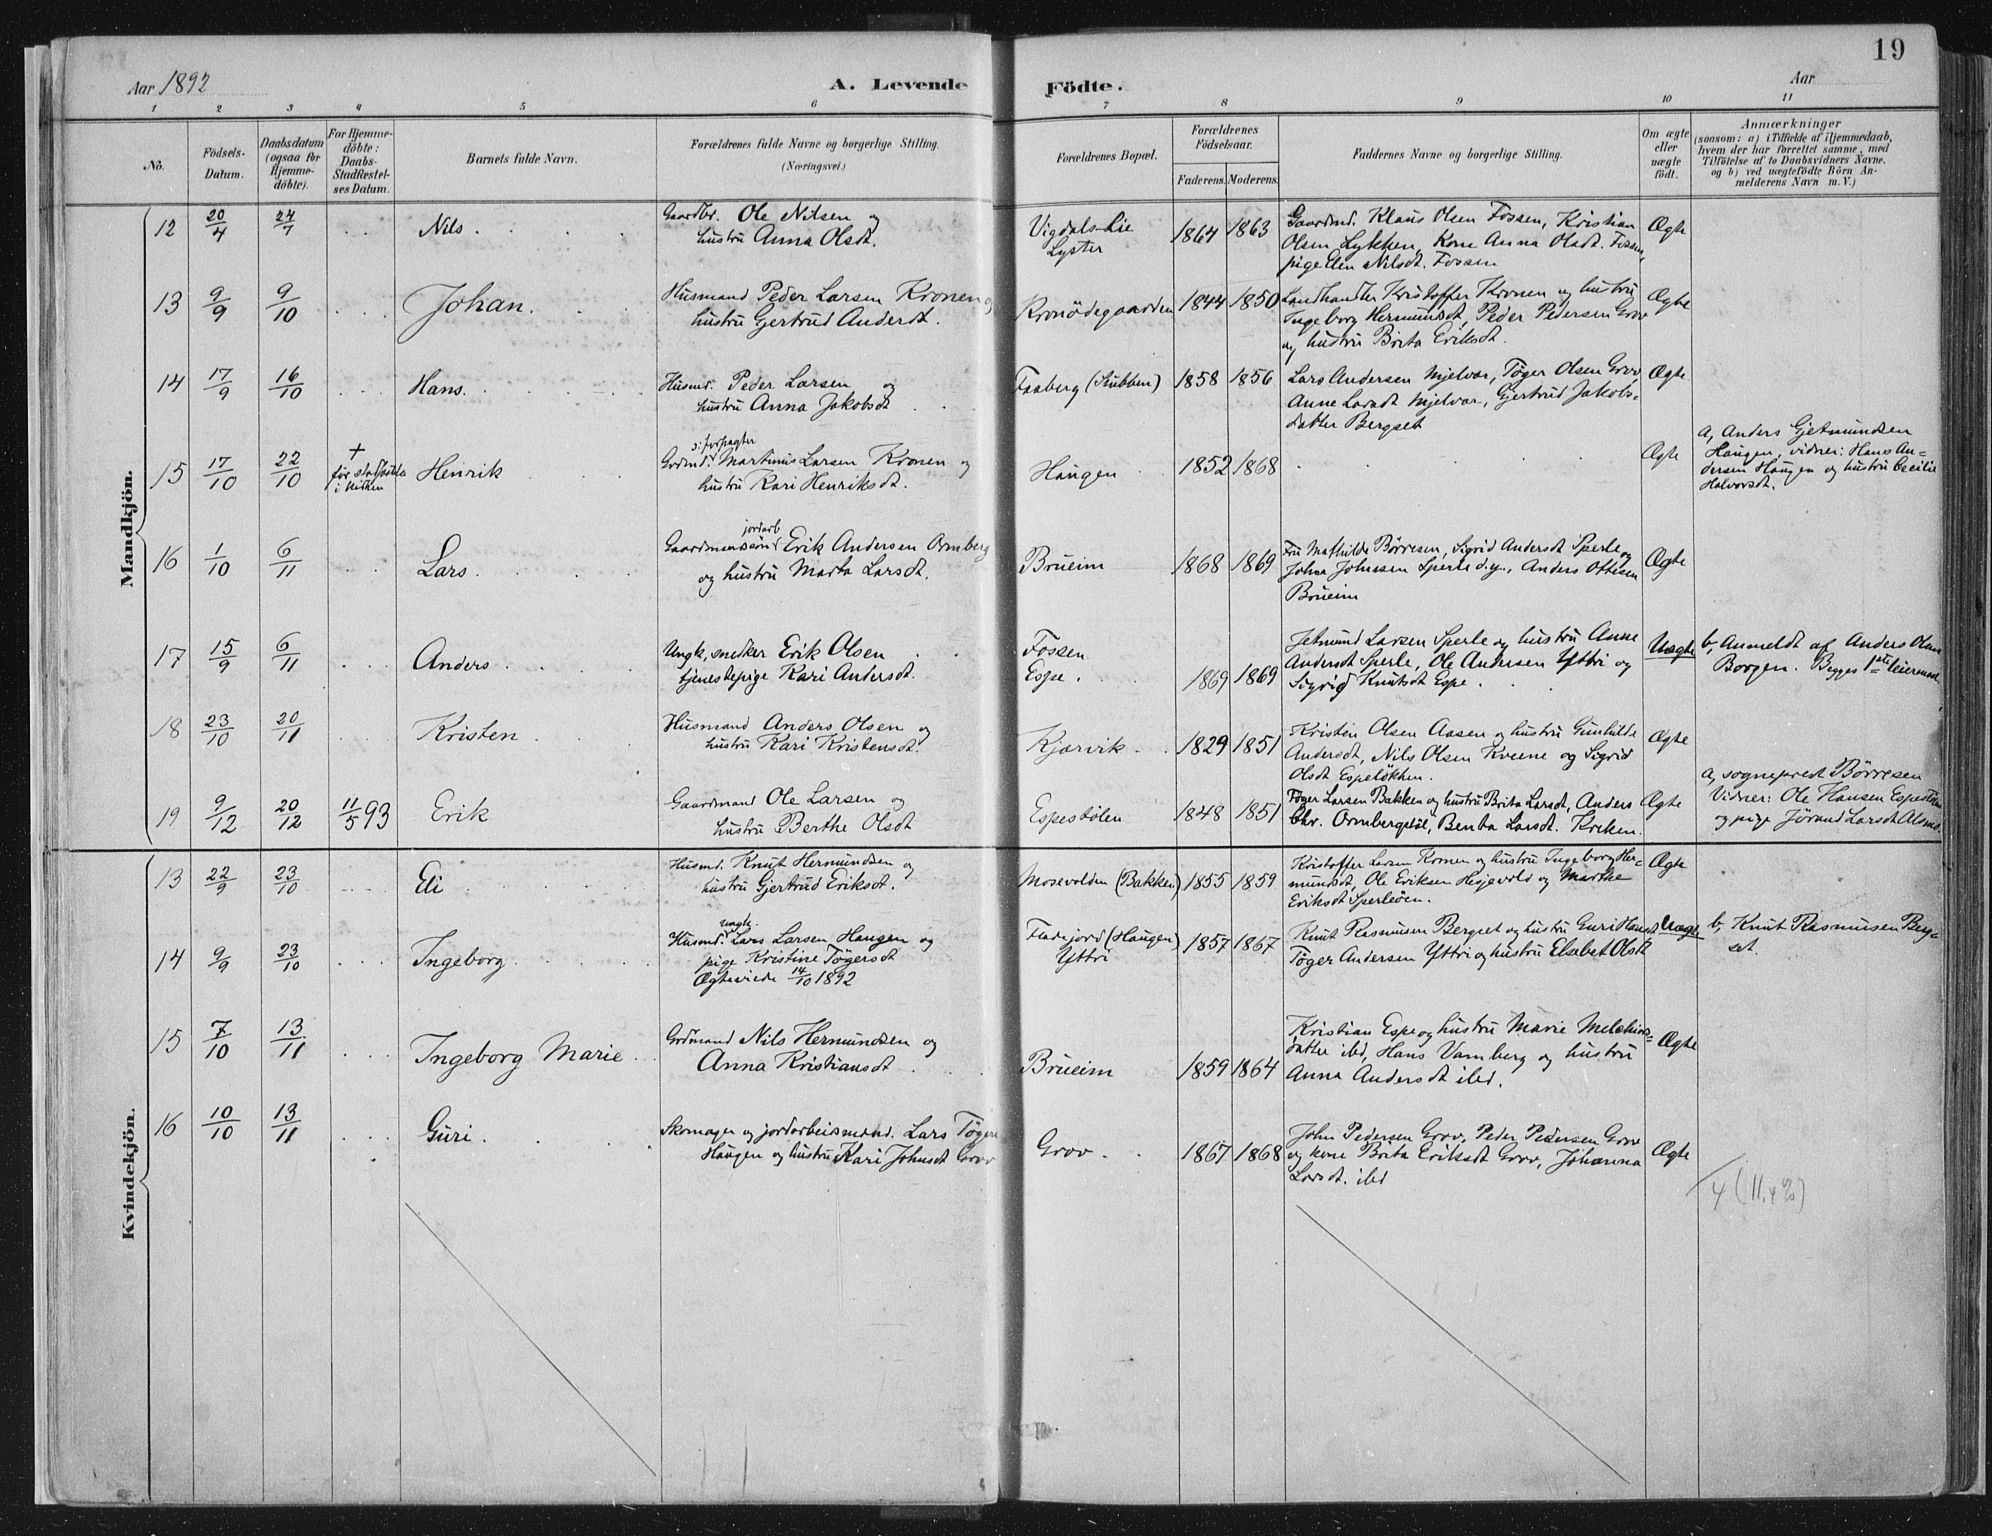 19
Aar 1892
A. Levende Födte.
Aar
1 2 3 4 5 6 7 8 9 10 11
No.
Födsels-Datum.
Daabsdatum (ogsaa for Hjemme-döbte).
For Hjemme-döbte: Daabs-Stadfæstel-ses Datum.
Barnets fulde Navn.
Forældrenes fulde Navne og borgerlige Stilling. (Næringsvei.)
Forældrenes Bopæl.
Forældrenes Födselsaar.
Faderens. Moderens.
Faddernes Navne og borgerlige Stilling.
Om ægte eller uægte födt.
Anmærkninger
(saasom: a) i Tilfælde af Hjemmedaab,
hvem der har forrettet samme, med
Tilföielse af to Daabsvidners Navne.
og b) ved uægtefödte Börn An-
melderens Navn m. V.)
Mandkjön.
12 20/4 24/7 Nils. Gaardbr. Ole Nilsen og
hustru Anna Olsdt.
Vigdals-Lie
Lyster
1864 1863
Gaardmd. Klaus Olsen Fossen, Kristian
Olsen Lykken, Kone Anna Olsdt. Fossen,
pige Elen Nilsdt. Fossen
Ægte
13 9/9 9/10 Johan. Husmand Peder Larsen Kronen og
hustru Gjertrud Andersdt.
Kronödegaarden 1844 1850
Landhandler Kristoffer Kronen og hustru
Ingeborg Hermundsdt, Peder Pedersen Grov
og hustru Brita Eriksdt.
Ægte
14 17/9 16/10 Hans. Husmd. Peder Larsen og
hustru Anna Jakobsdt
Faaberg (Stubben) 1858 1856
Lars Andersen Mjelvar, Töger Olsen Grov,
Anne Larsdt Mjelvar, Gjertrud Jakobs-
datter Bergset
Ægte
15 17/10 22/10 + før stadfæstelse
i kirken
Henrik
ɔ: forpagter
Grdmd. Martinus Larsen Kronen og
hustru Kari Henriksdt.
Haugen 1852 1868
Ægte
a, Anders Gjetmundsen
Haugen, vidner: Hans An-
dersen Haugen og hustru Cecilie
Halvorsdt.
16 1/10 6/11 Lars.
jordarb
Gaardmandssön Erik Andersen Ormberg
og hustru Marta Larsdt.
Brüeim 1868 1869
Fru Mathilde Børresen, Sigrid Andersdt Sperle og
Johan Johnsen Sperle d.y., Anders Ottesen
Brüeim
Ægte
17 15/9 6/11 Anders. Ungk, snedker Erik Olsen
tjenestepige Kari Andersdt.
Fossen
Espe.
1869 1869
Jetmund Larsen Sperle og hustru Anne
Andersdt Sperle, Ole Andersen Yttri og
Sigrid Knutsdt Espe.
Uægte
b, Anmeldt af Anders Olsen
Borgen. Begges 1ste leiermaal.
18 23/10 20/11 Kristen Husmand Anders Olsen og
hustru Kari Kristensdt.
Kjærvik. 1829 1851
Kristen Olsen Aasen og hustru Gunhilde
Andersdt, Nils Olsen Kveene og Sigrid
Olsdt Espelökken.
Ægte
19 9/12 20/12 11/5 93 Erik Gaardmand Ole Larsen og
hustru Berthe Olsdt
Espestölen 1848 1851
Töger Larsen Bakken og hustru Brita Larsdt, Anders
Chr. Ormbergstöl, Benta Larsdt. Kveken.
Ægte
a, sogneprest Børresen
Vidner: Ole Hansen Espestölen
og pige Jörand Larsdt Alsmo.
Kvindekjön.
13 22/9 23/10 Eli Husmd. Knut Hermundsen og
hustru Gjertrud Eriksdt.
Mosevolden (Bakken) 1855 1859
Kristoffer Larsen Kronen og hustru Ingeborg Her-
mundsdt, Ole Eriksen Hesjevold og Marthe
Eriksdt Sperleöen.
Ægte
14 9/9 23/10 Ingeborg.
ungk.
Husmd. Lars Larsen Haugen og
pige Kristine Tögersdt
Ægteviede 14/10 1892
Fladejord (Haugen)
Yttri
1857 1867
Knut Rasmussen Bergset og hustru Guri Hansdt
Töger Andersen Yttri og hustru Elsebet Olsdt
Uægte
b, Knut Rasmussen Berg-
set.
15 7/10 13/11 Ingeborg Marie Grdmand Nils Hermundsen og
Anna Kristiansdt
Brüeim 1859 1864
Kristian Espe og hustru Marie Melchiors-
datter ibd, Hans Vamberg og hustru
Anna Andersdt ibd.
Ægte
16 10/10 13/11 Guri. Skomager og jordarbeismand. Lars Töger
Haugen og hustru Kari Johnsdt Grov
Grov. 1867 1868
John Pedersen Grov, Peder Pedersen Grov
og kone Brita Eriksdt Grov, Johanna
Larsdt. ibd
Ægte
4 (11,4%)